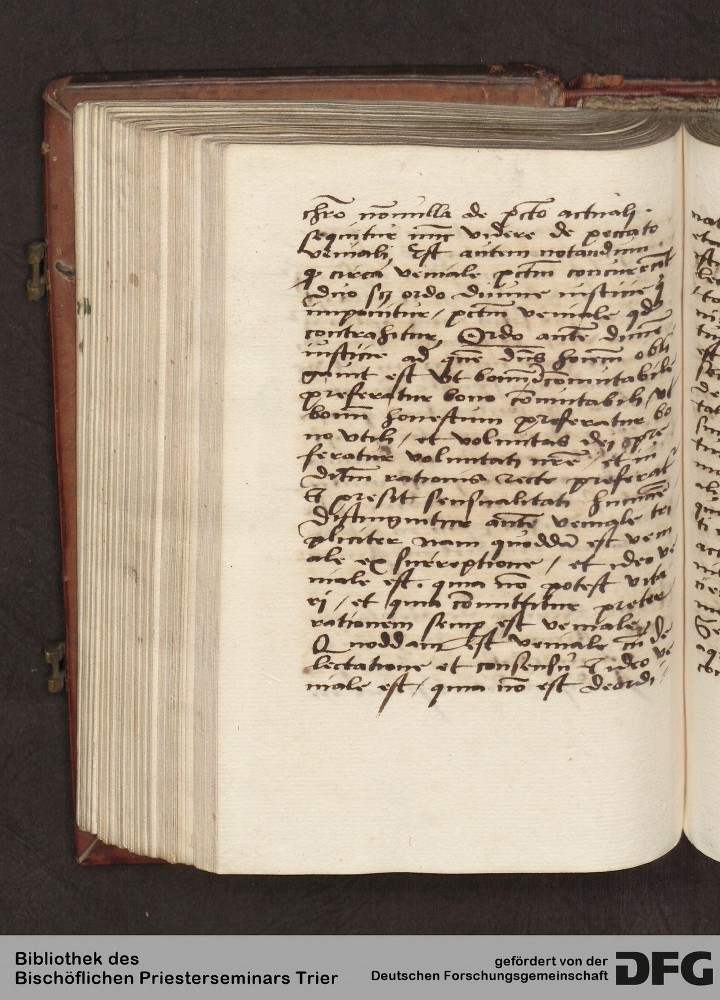 chro nonnulla de pcto actuali .
sequitur nunc videre de peccato
veniali, Est autem notandum .
q circa veniale pctm concurrunt
duo scz ordo diuine iusticie q
imponitur / pctm veniale qd
contrahitur, Ordo ante diuine
iusticie ad que dns hoiem obli
gauit est vt bonum incomutabile
preferatur bono comutabili / vt
bonum honestum preferatur bo
no vtili / et voluntas dei pre
feratur voluntati nre / et iu
ditm rationis recte preferat
presit sensualitati humane
Distinguitur ante veniale tri
pliciter nam quodda est veni
ale ex surreptione / et ideo ve
niale est . quia no potest vita
ri / et quia comittitur preter
rationem semp est veniale
Quoddam est veniale cu de
lectatione et consensu ideo ve
niale est / quia no est deordi
Bibliothek des
Bischöflichen Priesterseminars Trier
gefördert von der
Deutschen Forschungsgemeinschaft
DFG